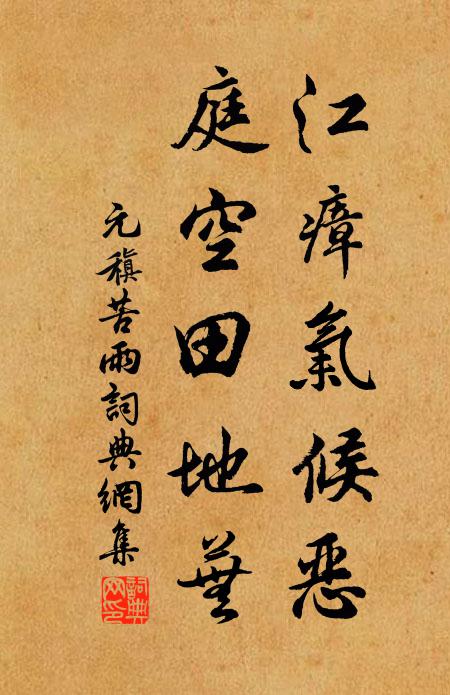 江瘴氣候惡
庭空田地蕪
元稹苦雨詞典網集
詞典網印